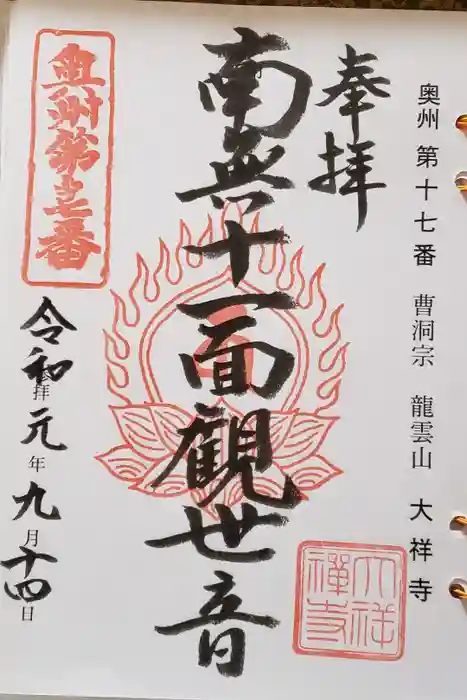 奥州 第十七番 曹洞宗 龍雲山 大祥寺
奉拝
南無十一面観世音
奥州第十七番
令和元年九月十四日
拝
大祥禅寺